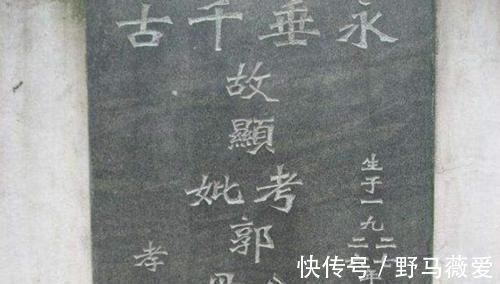 永垂千古
生于一九二
故顯考妣郭
孝
快传号 / 野马薇爱